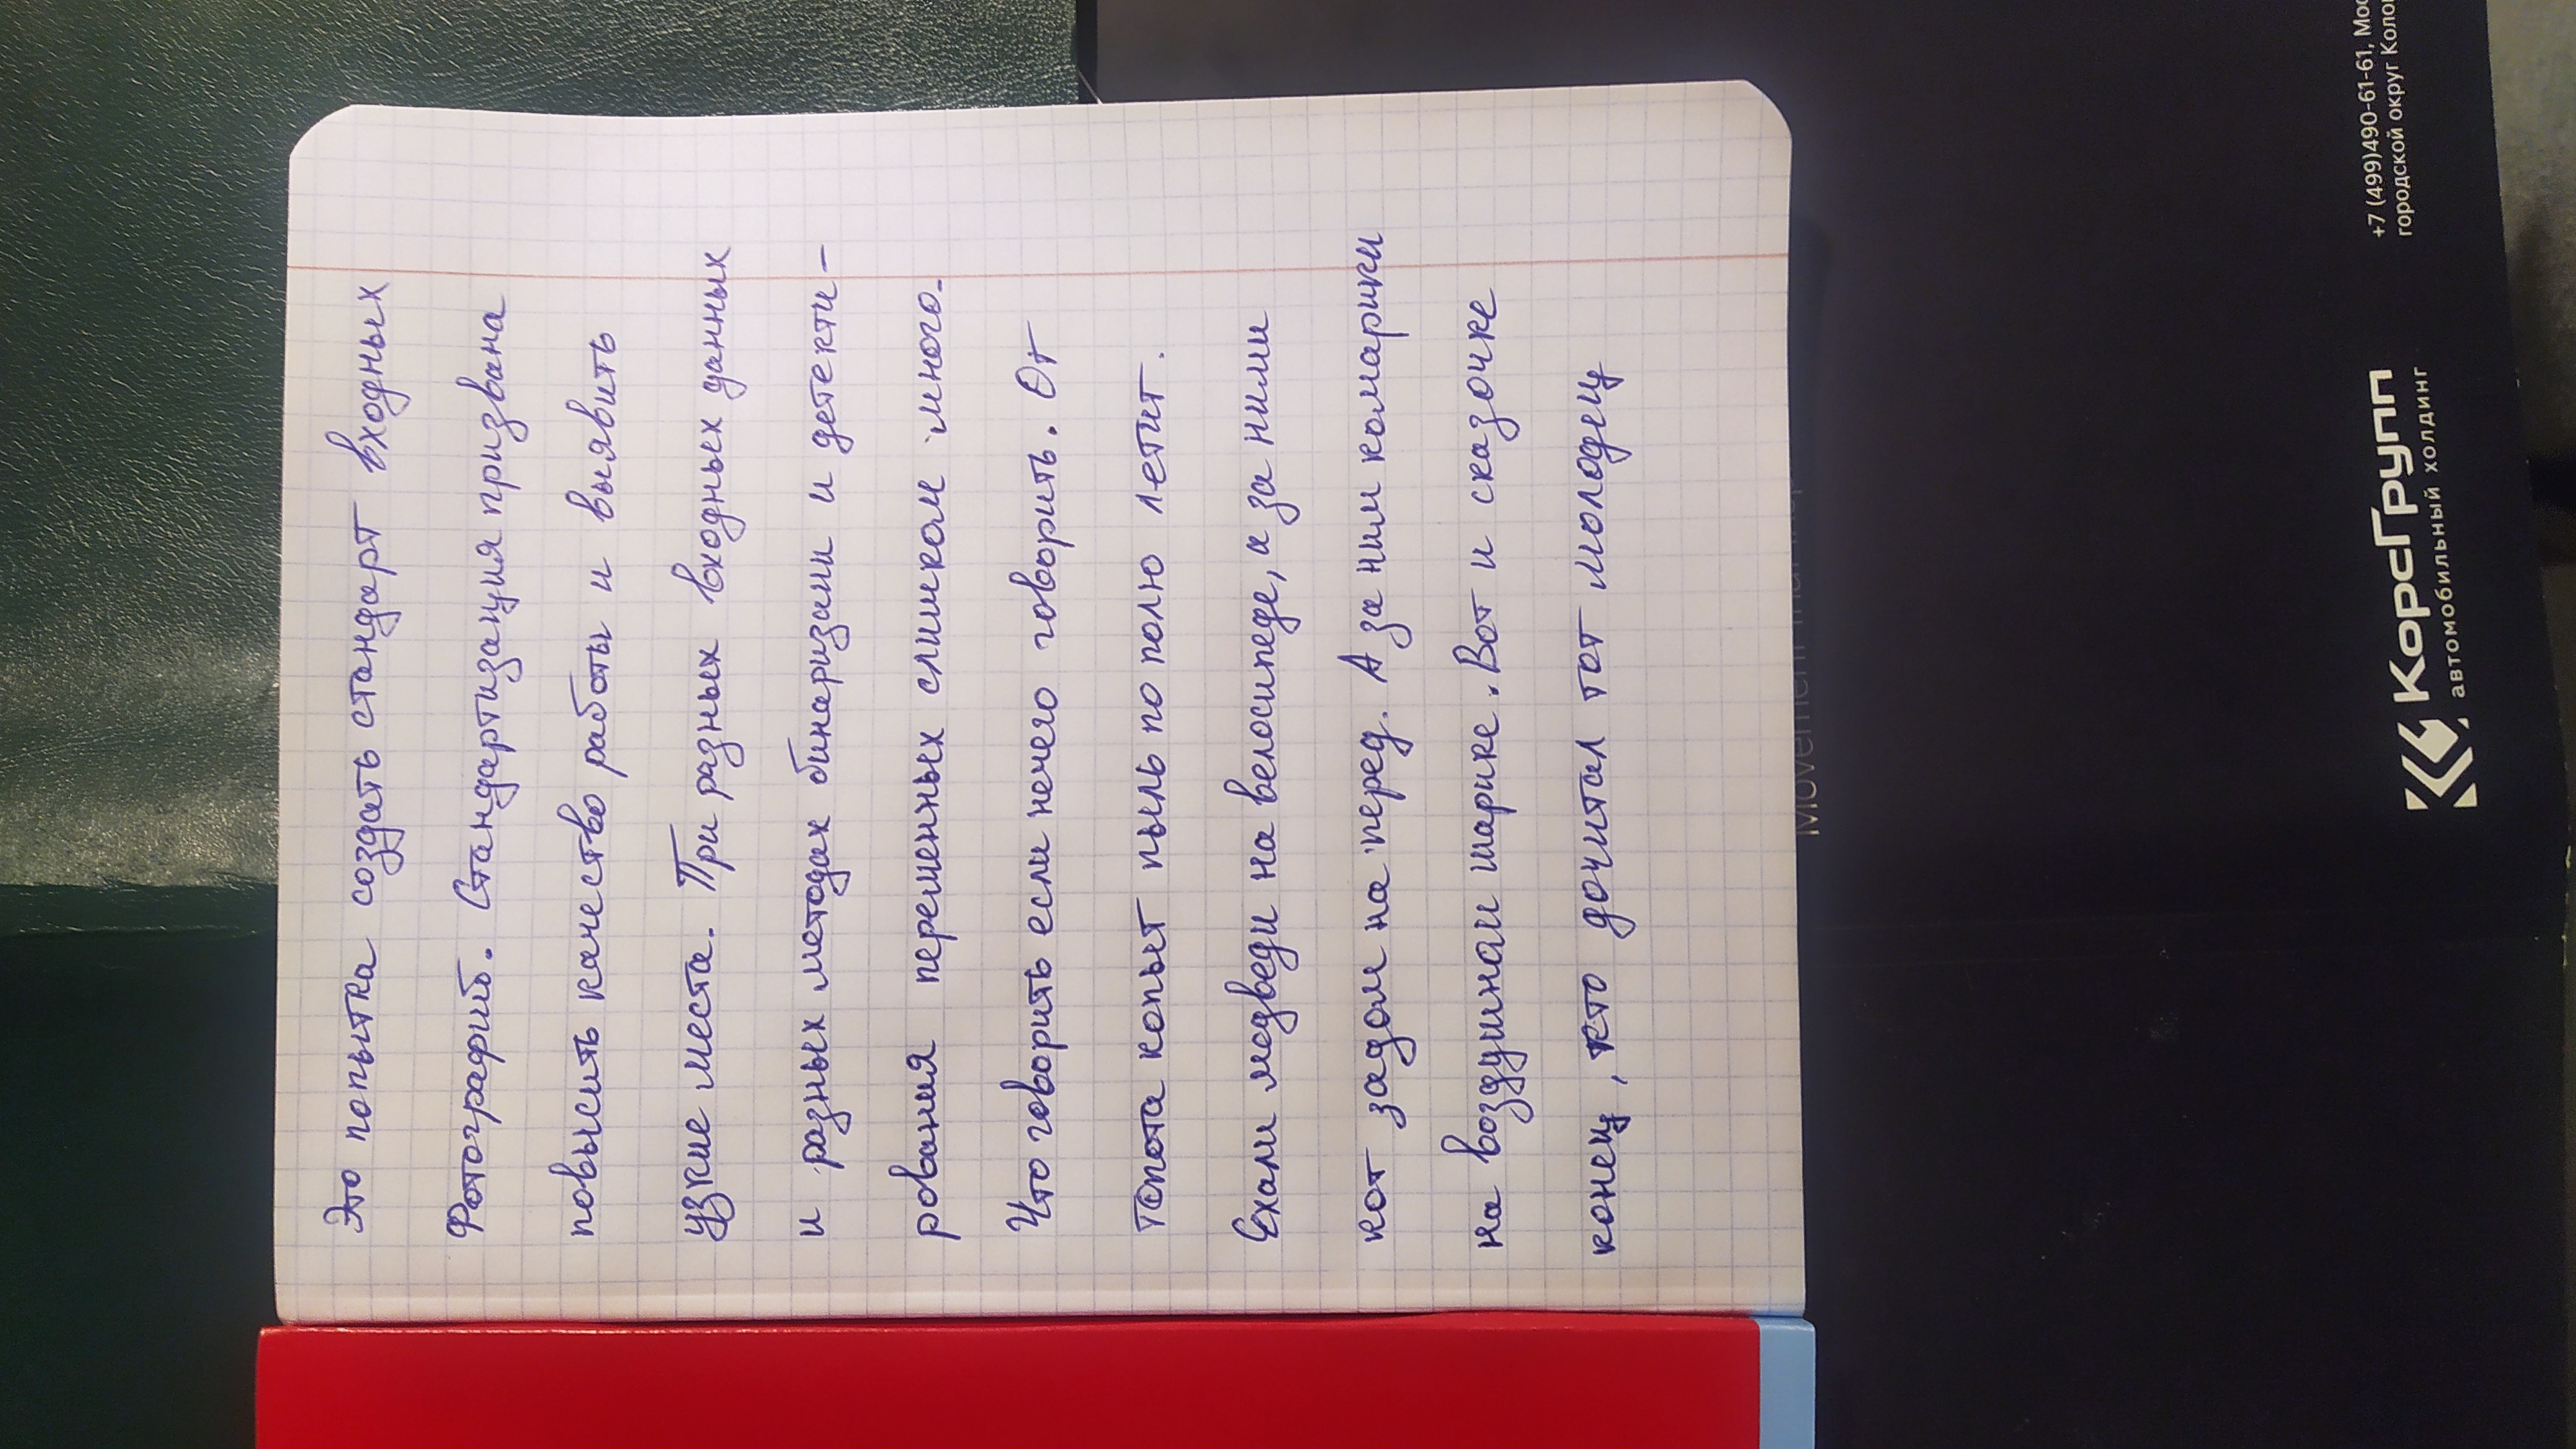 Это попытка создать стандарт входных
Фотографий. Стандартизация призвана
повысить качество работы и выявить
узкие места. При разных входных данных
и разных методах бинаризации и детекти-
рования переменных слишком много.
Что говорить если нечего говорить. От
топота копыт пыль по полю летит.
Ехали медведи на велосипеде, а за ними
кот задом на перед. А за ним комарики
на воздушном шарике. Вот и сказочке
конец, кто дочитал тот молодец
Movement that
КорсГрупп
автомобильный холдинг
+7 (499)490-61-61,
городской округ